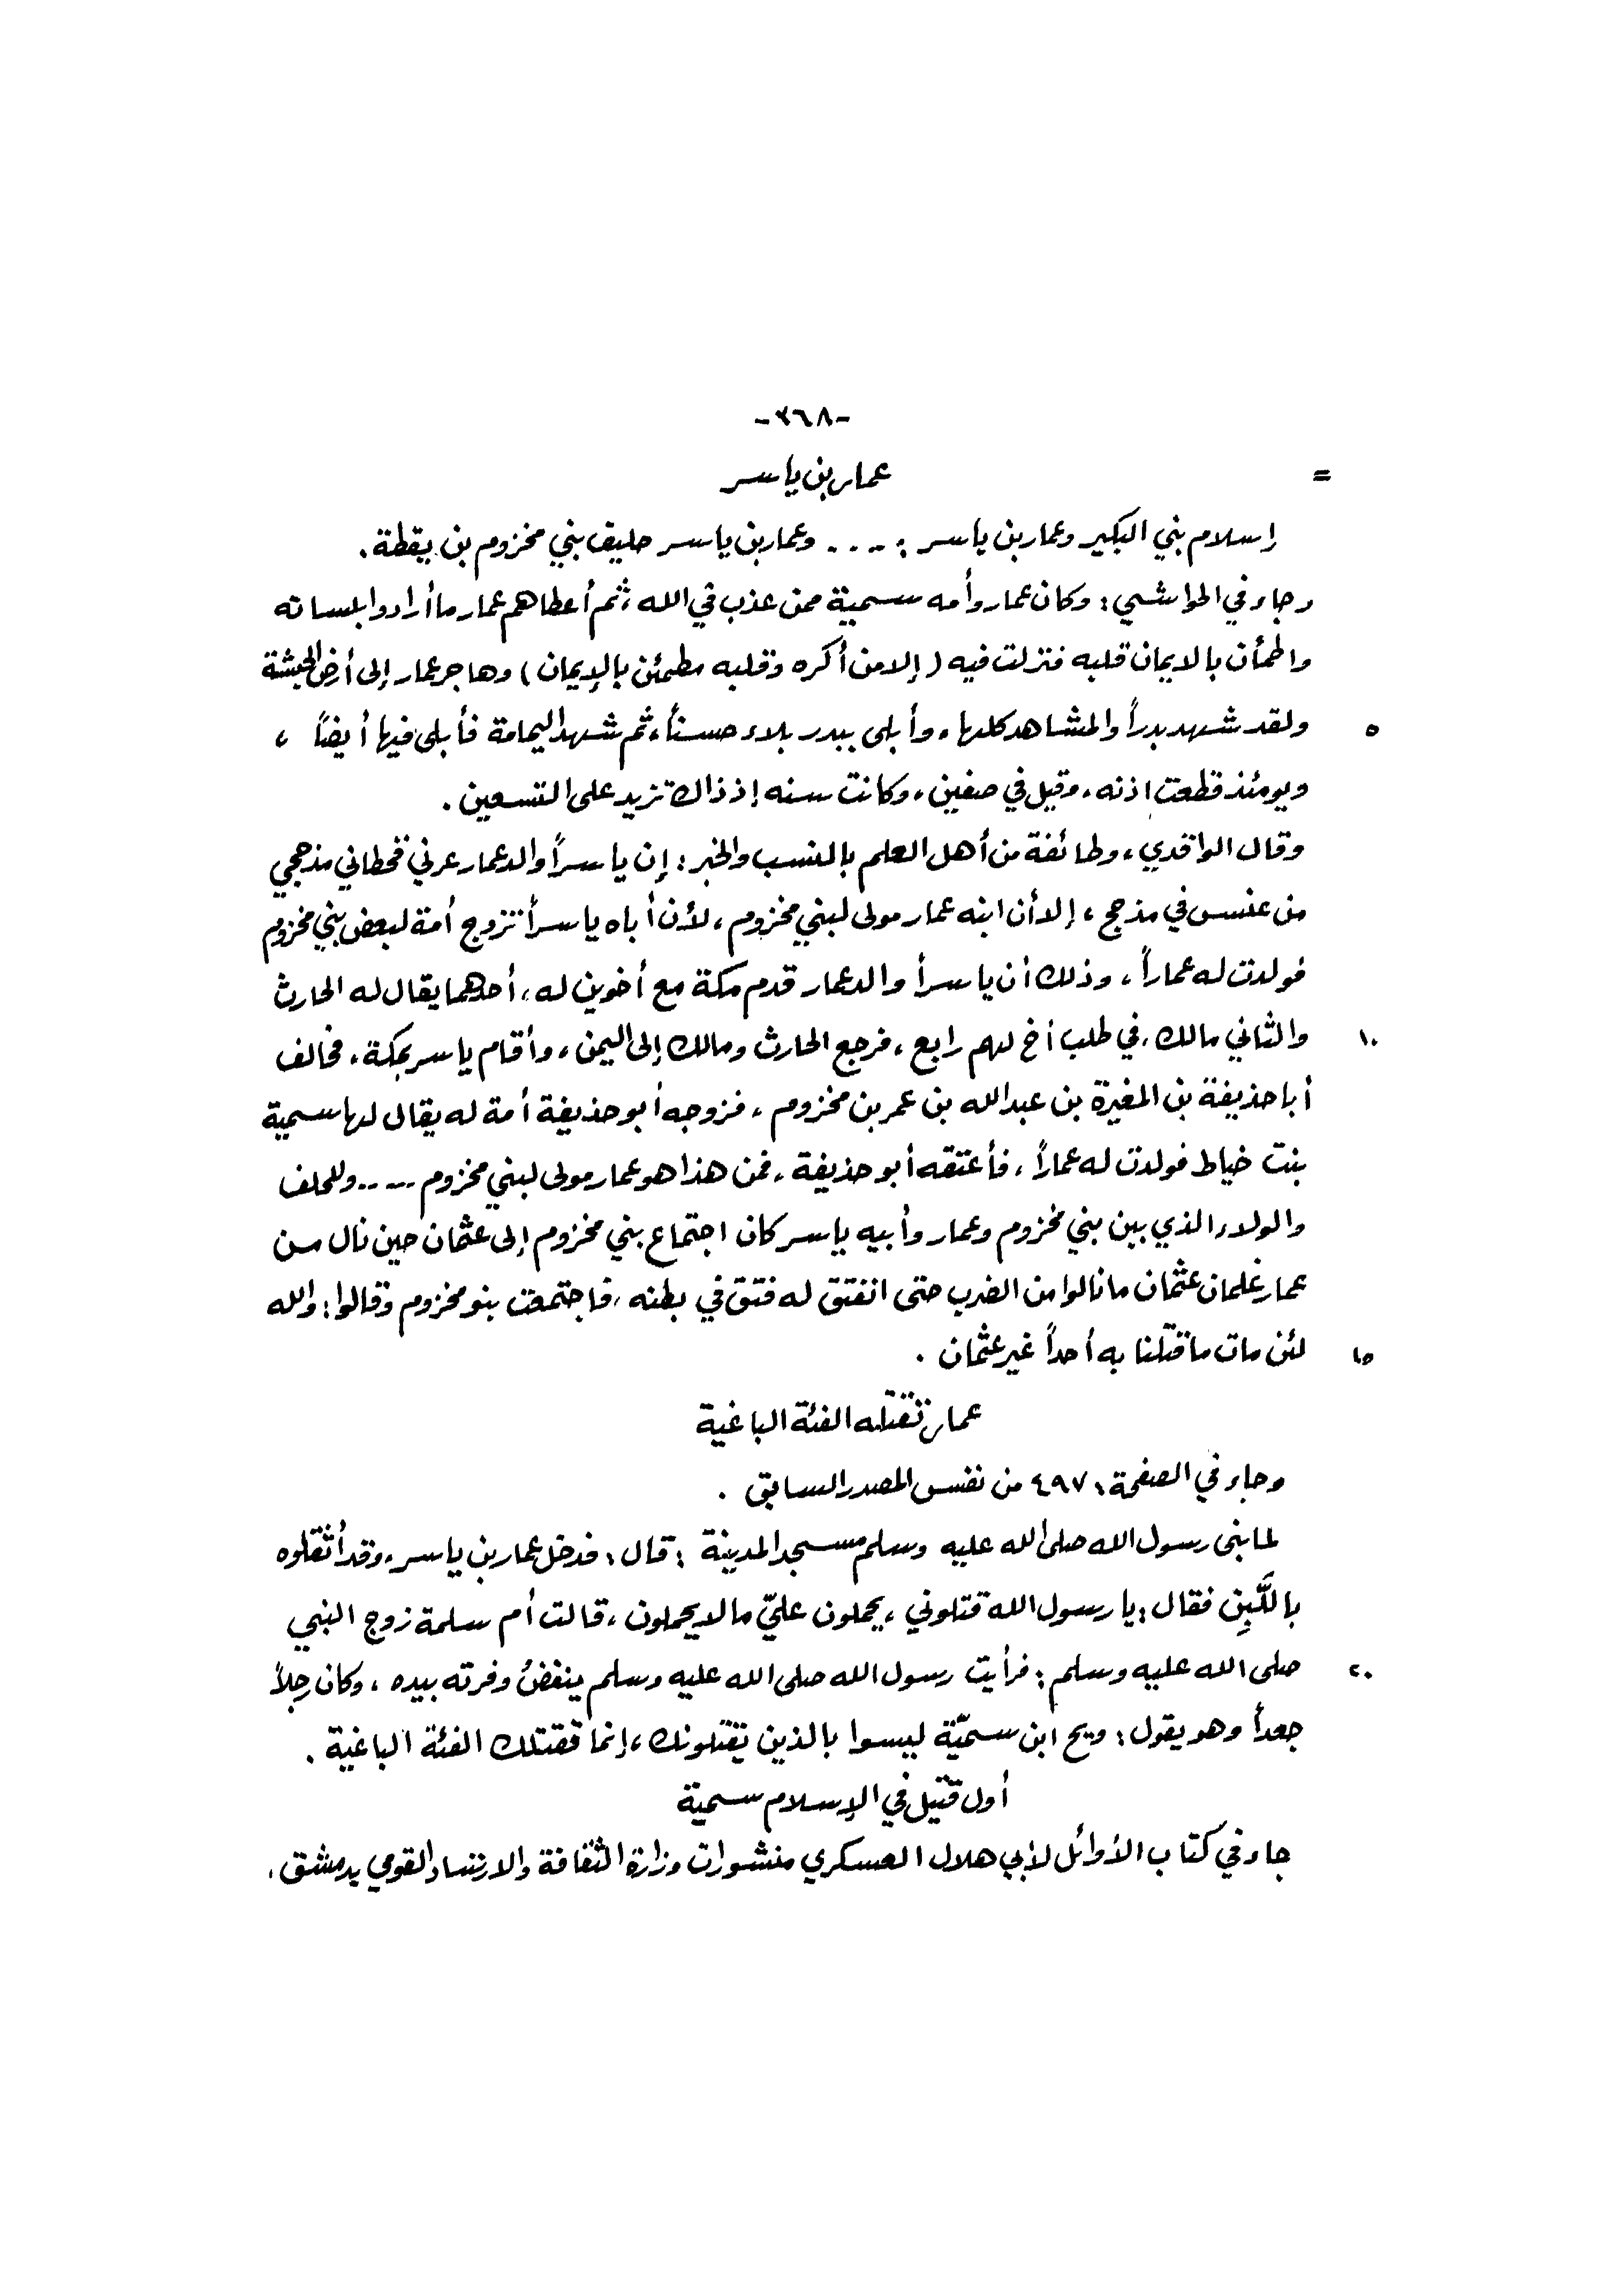 -٣٦٨-
= عمار بن ياسر
إسلام بني البكير وعمار بن ياسر : .... وعمار بن ياسر حليف بني مخزوم بن يقظة .
وجاء في الحواشي : وكان عمار وأمه سمية ممن عذب في الله ، ثم أعطاهم عمار ما أرادوا بلسانه
واطمأن بالايمان قلبه فنزلت فيه ( إلا من أكره وقلبه مطمئن بالإيمان ) وهاجر عمار إلى أرض الحبشة
٥ ولقد شهد بدراً والمشاهد كلها ، وأبلى ببدر بلاء حسناً ، ثم شهد اليمامة فأبلى فيها أيضاً ،
ويومئذ قطعت اذنه ، وقيل في صفين ، وكانت سنه إذ ذاك تزيد على التسعين .
وقال الواقدي ، وطائفة من أهل العلم بالنسب والخبر : إن ياسراً والد عمار عرني قحطاني مذحجي
من عنس في مذحج ، إلا أن ابنه عمار مولى لبني مخزوم ، لأن أباه ياسراً تزوج أمة لبعض بني مخزوم
فولدت له عماراً ، وذلك أن ياسراً والد عمار قدم مكة مع أخوين له ، أحدهما يقال له الحارث
١٠ والثاني مالك ، في طلب أخ لهم رابع ، فرجع الحارث ومالك إلى اليمن ، وأقام ياسر بمكة ، فحالف
أبا حذيفة بن المغيرة بن عبد الله بن عمر بن مخزوم ، فزوجه أبو حذيفة أمة له يقال لها سمية
بنت خياط فولدت له عماراً ، فأعتقه أبو حذيفة ، فمن هذا هو عمار مولى لبني مخزوم .... وللحلف
والولاء الذي بين بني مخزوم وعمار وأبيه ياسر كان اجتماع بني مخزوم إلى عثمان حين نال من
عمار غلمان عثمان ما نالوا من الضرب حتى انفتق له فتق في بطنه ، فاجتمعت بنو مخزوم وقالوا : والله
١٥ لئن مات ما قتلنا به أحداً غير عثمان .
عمار تقتله الفئة الباغية
وجاء في الصفحة : ٤٩٧ من نفس المصدر السابق .
لما بنى رسول الله صلى الله عليه وسلم مسجد المدينة : قال : فدخل عمار بن ياسر ، وقد أثقلوه
باللَّبِن فقال : يا رسول الله قتلوني ، يحملون عليّ ما لا يحملون ، قالت أم سلمة زوج النبي
٢٠ صلى الله عليه وسلم : فرأيت رسول الله صلى الله عليه وسلم ينفضُ وفرته بيده ، وكان رجلاً
جعداً وهو يقول : ويح ابن سميّة ليسوا بالذين يقتلونك ، إنما تقتلك الفئة الباغية .
أول قتيل في الإسلام سمية
جاء في كتاب الأوائل لأبي هلال العسكري منشورات وزارة الثقافة والارشاد القومي بدمشق ،